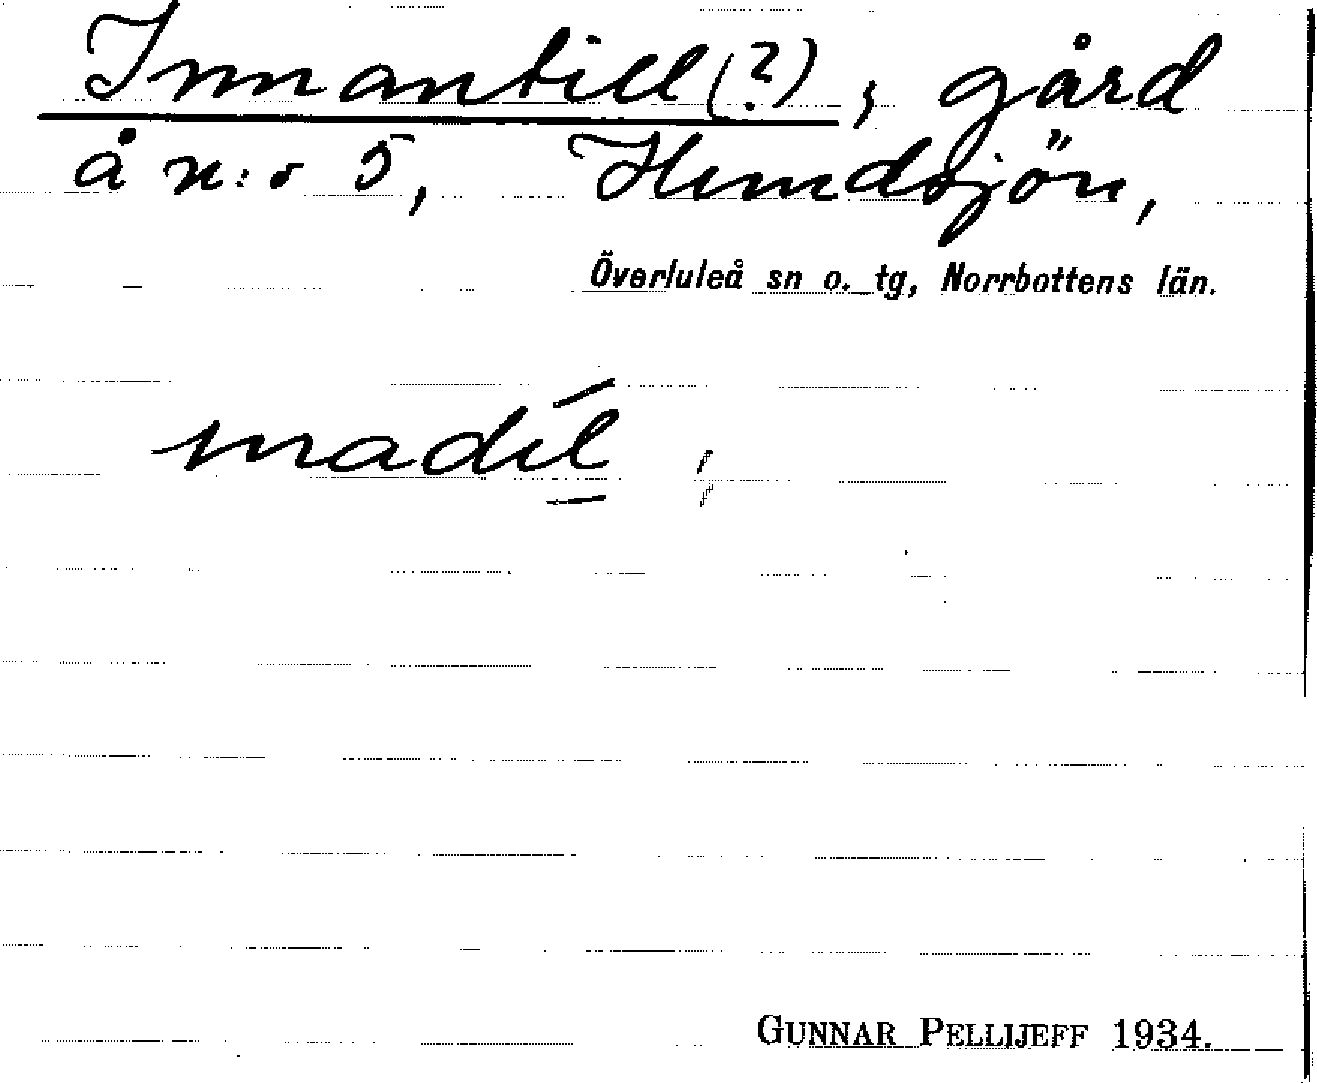 Innantill(?), gård
å n:r 5, Hundsjön,
Överluleå sn o. tg, Norrbottens län.
madíl ;
GUNNAR PELLIJEFF 1934.